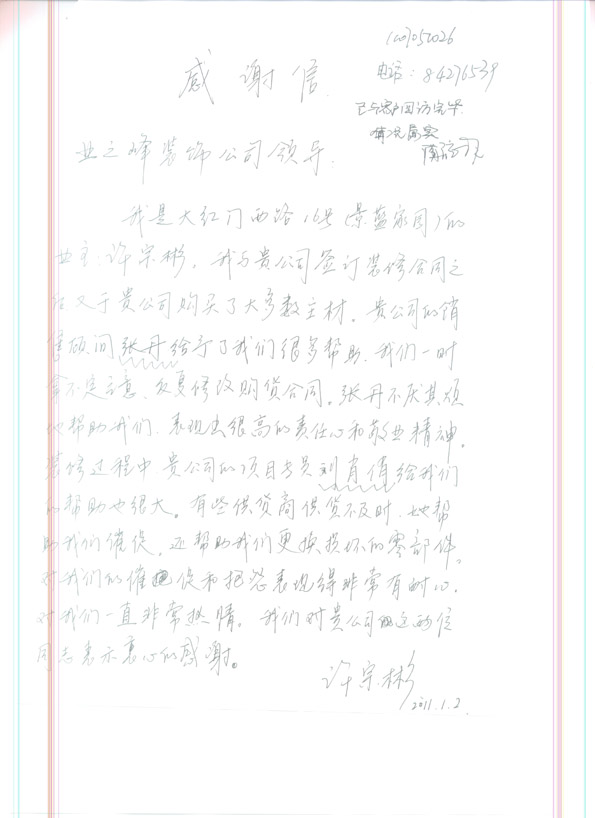 (00)050026
感谢信
电话:84276539
已与客户回访完毕
情况属实
业之峰装饰公司领导:
我是大红门西路16号(景蓝家园)的
业主:许宗彬。我与贵公司签订装修合同之
后又于贵公司购买了大多数主材。贵公司的销
售顾问张丹给予了我们很多帮助,我们一时
拿不定主意,反复修改购货合同。张丹不厌其烦
地帮助我们,表现出很高的责任心和敬业精神。
装修过程中,贵公司的项目专员刘肖倩给我们
的帮助也很大。有些供货商供货不及时,她帮
助我们催促,还帮助我们更换损坏的零部件。
对我们的催促和抱怨表现得非常有耐心,
对我们一直非常热情。我们对贵公司的这两位
同志表示衷心的感谢。
许宗彬
2011.1.2.